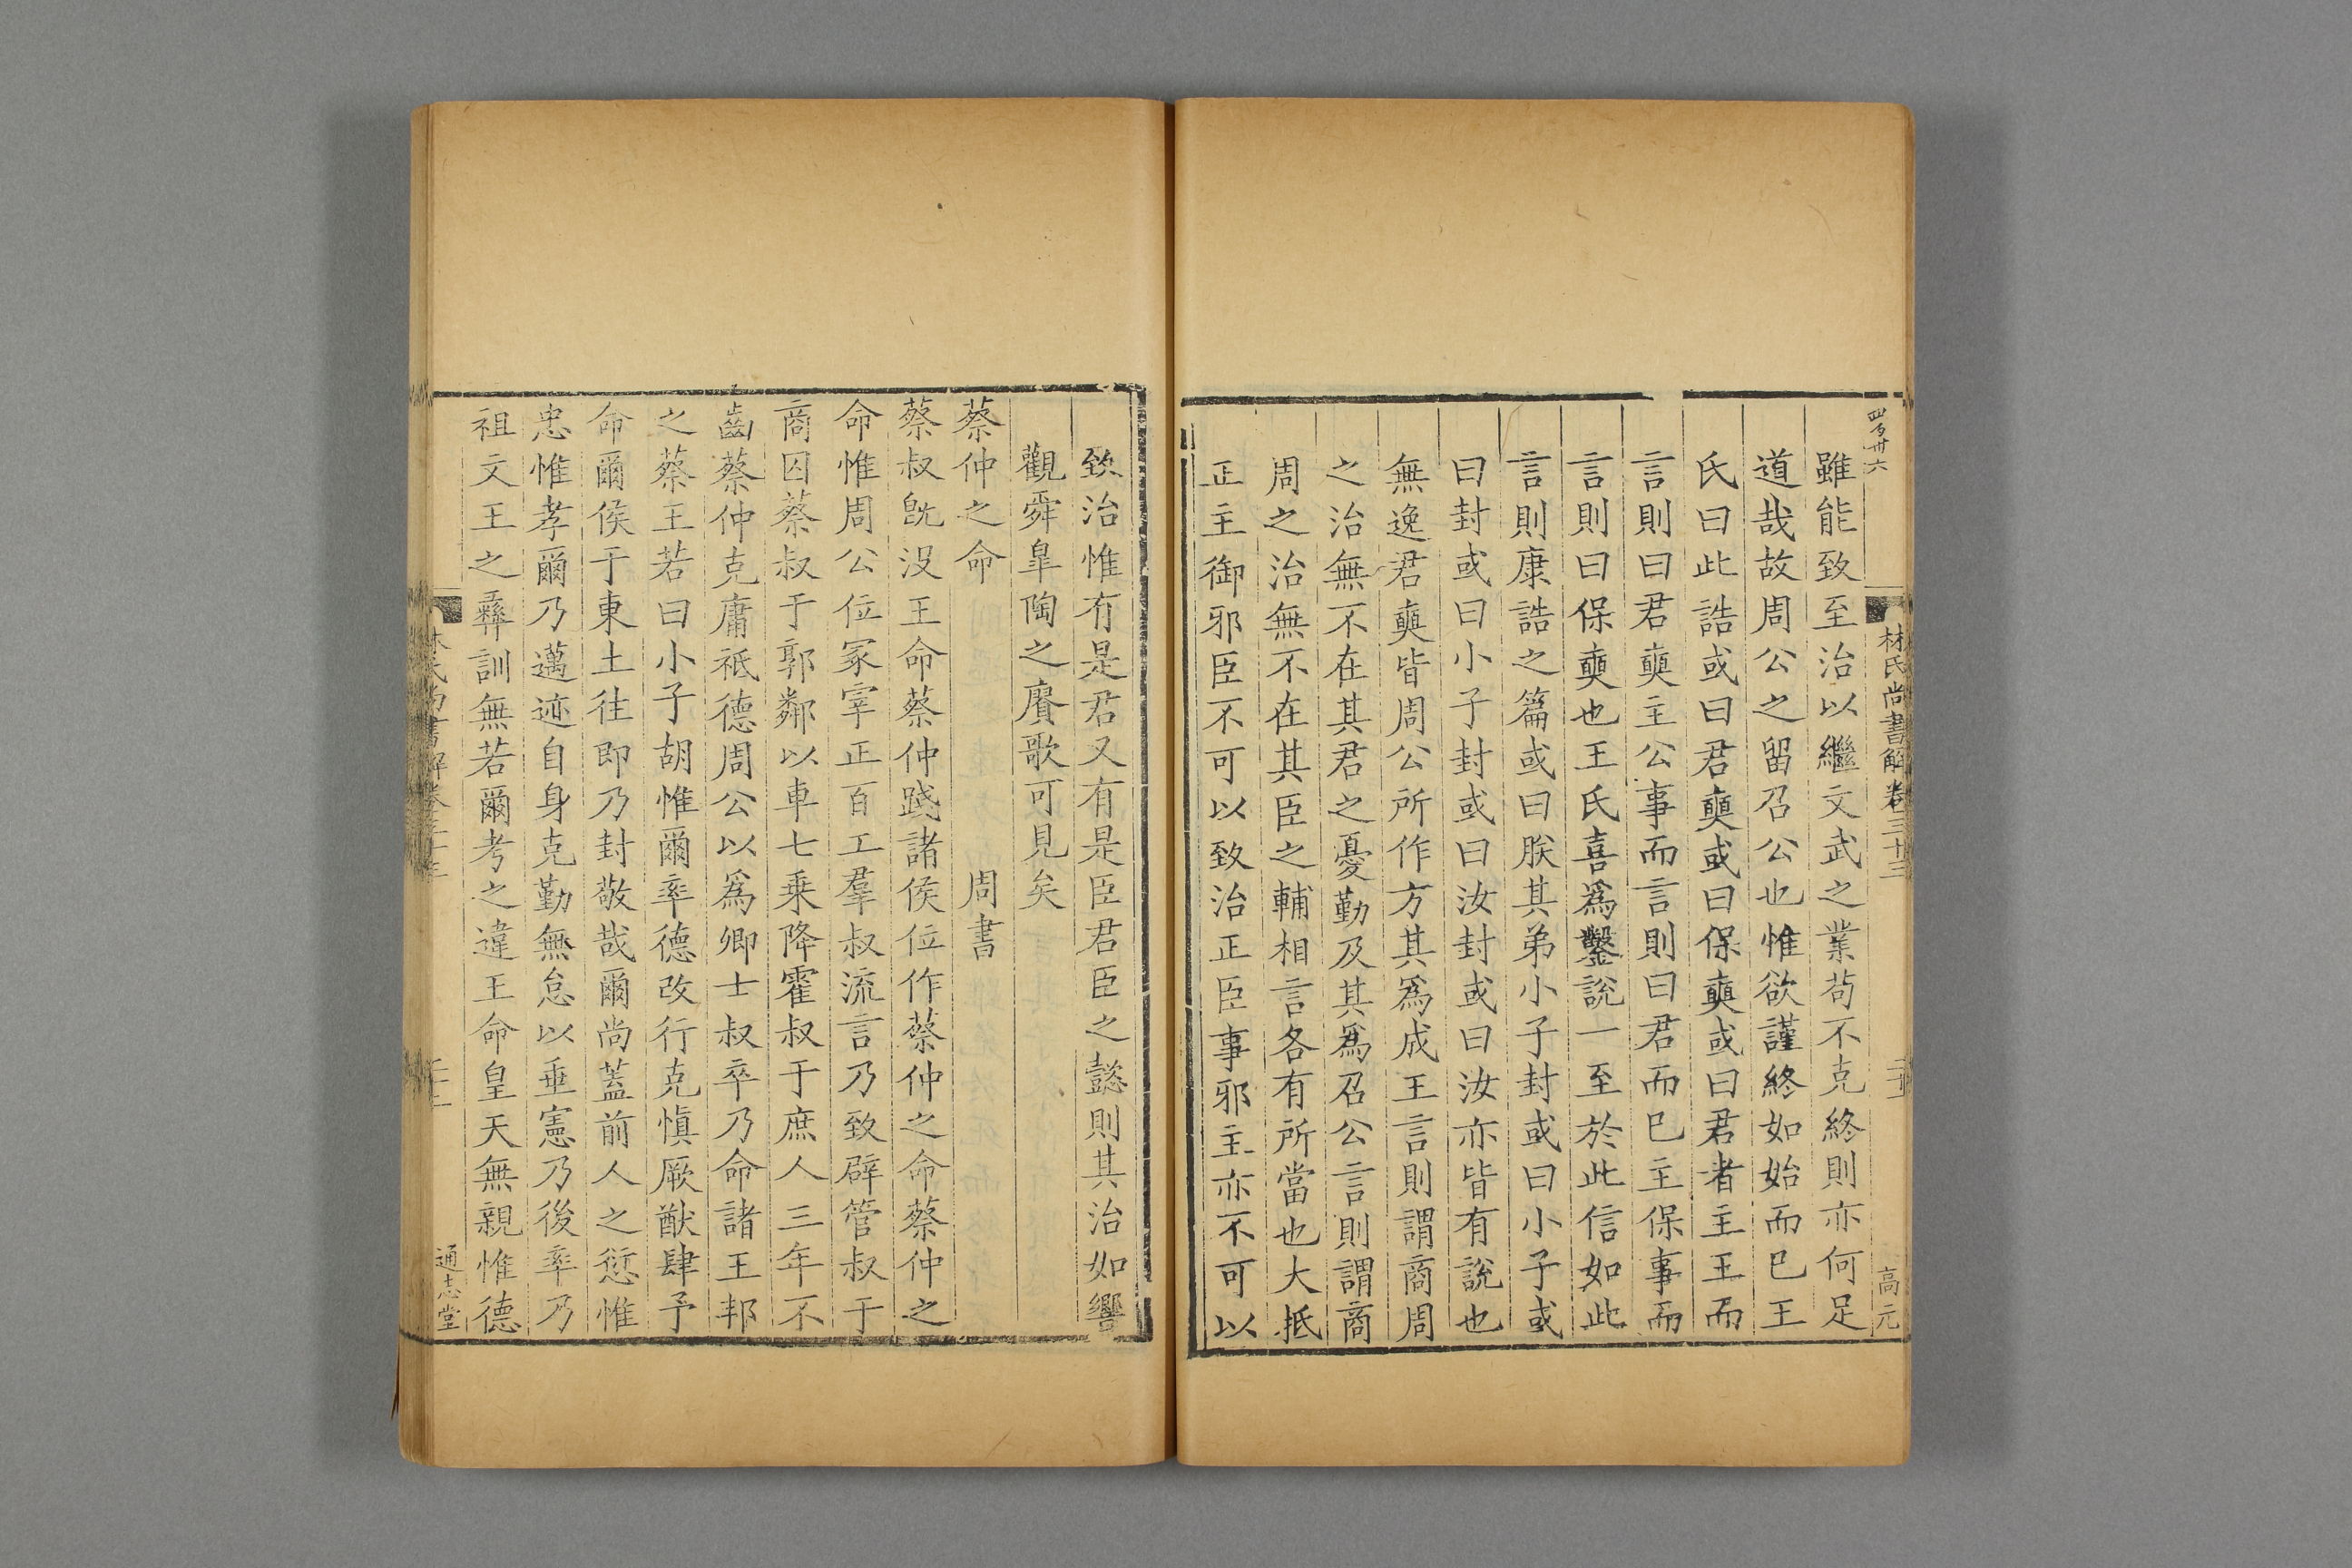 四百卅六
林氏尚書解卷三十三
高元
雖能致至治以繼文武之業苟不克終則亦何足
道哉故周公之留召公也惟欲謹終如始而已王
氏曰此誥或曰君奭或曰保奭或曰君者主王而
言則曰君奭主公事而言則曰君而已主保事而
言則曰保奭也王氏喜爲鑿說一至於此信如此
言則康誥之篇或曰朕其弟小子封或曰小子或
曰封或曰小子封或曰汝封或曰汝亦皆有說也
無逸君奭皆周公所作方其爲成王言則謂商周
之治無不在其君之憂勤及其爲召公言則謂商
周之治無不在其臣之輔相言各有所當也大抵
正主御邪臣不可以致治正臣事邪主亦不可以
致治惟有是君又有是臣君臣之懿則其治如響
觀舜皐陶之賡歌可見矣
蔡仲之命 周書
蔡叔旣没王命蔡仲踐諸侯位作蔡仲之命蔡仲之
命惟周公位冢宰正百工羣叔流言乃致辟管叔于
商囚蔡叔于郭鄰以車七乗降霍叔于庶人三年不
齒蔡仲克庸祗德周公以爲卿士叔卒乃命諸王邦
之蔡王若曰小子胡惟爾率德改行克愼厥猷肆予
命爾侯于東土往即乃封敬哉爾尚蓋前人之愆惟
忠惟孝爾乃邁迹自身克勤無怠以垂憲乃後率乃
祖文王之彝訓無若爾考之違王命皇天無親惟德
林氏尚書解卷三十三
通志堂